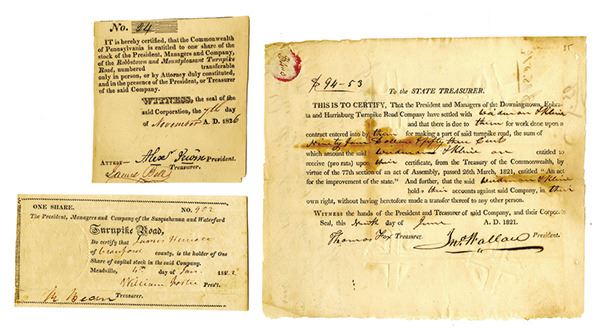 No. 24
IT is hereby certified, that the Commonwealth
of Pennsylvania is entitled to one share of the
stock of the President, Managers and Company,
of the Robbstown and Mountpleasant Turnpike
Road, numbered transferable
only in person, or by Attorney duly constituted,
and in the presence of the President, or Treasurer
of the said Company.
WITNESS, the seal of the
said Corporation, the 7th day
of November A. D. 1826
ATTEST President.
James Treasurer.
ONE SHARE. NO.
The President, Managers and Company of the Susquehanna and Waterford
Turnpike Road,
Do certify that James
of Crawford county, is the holder of One
Share of capital stock in the said Company.
Meadville, day of Jan. 182
William Foster Pres't.
Treasurer.
$ 94-53
To the STATE TREASURER.
THIS IS TO CERTIFY, That the President and Managers of the Downingstown, Ephra-
ta and Harrisburg Turnpike Road Company have settled with
and that there is due to them for work done upon a
contract entered into by them for making a part of said turnpike road, the sum of
Ninety four Dollars & fifty three Cents
which amount the said entitled to
receive (pro rata) upon their certificate, from the Treasury of the Commonwealth, by
virtue of the 77th section of an act of Assembly, passed 26th March, 1821, entitled "An act
for the improvement of the state." And further, that the said
hold their accounts against said Company, in their
own right, without having heretofore made a transfer thereof to any other person.
WITNESS the hands of the President and Treasurer of said Company, and their Corporate
Seal, this Ninth day of June A. D. 1821.
Thomas Fox Treasurer. Jno Wallace President.